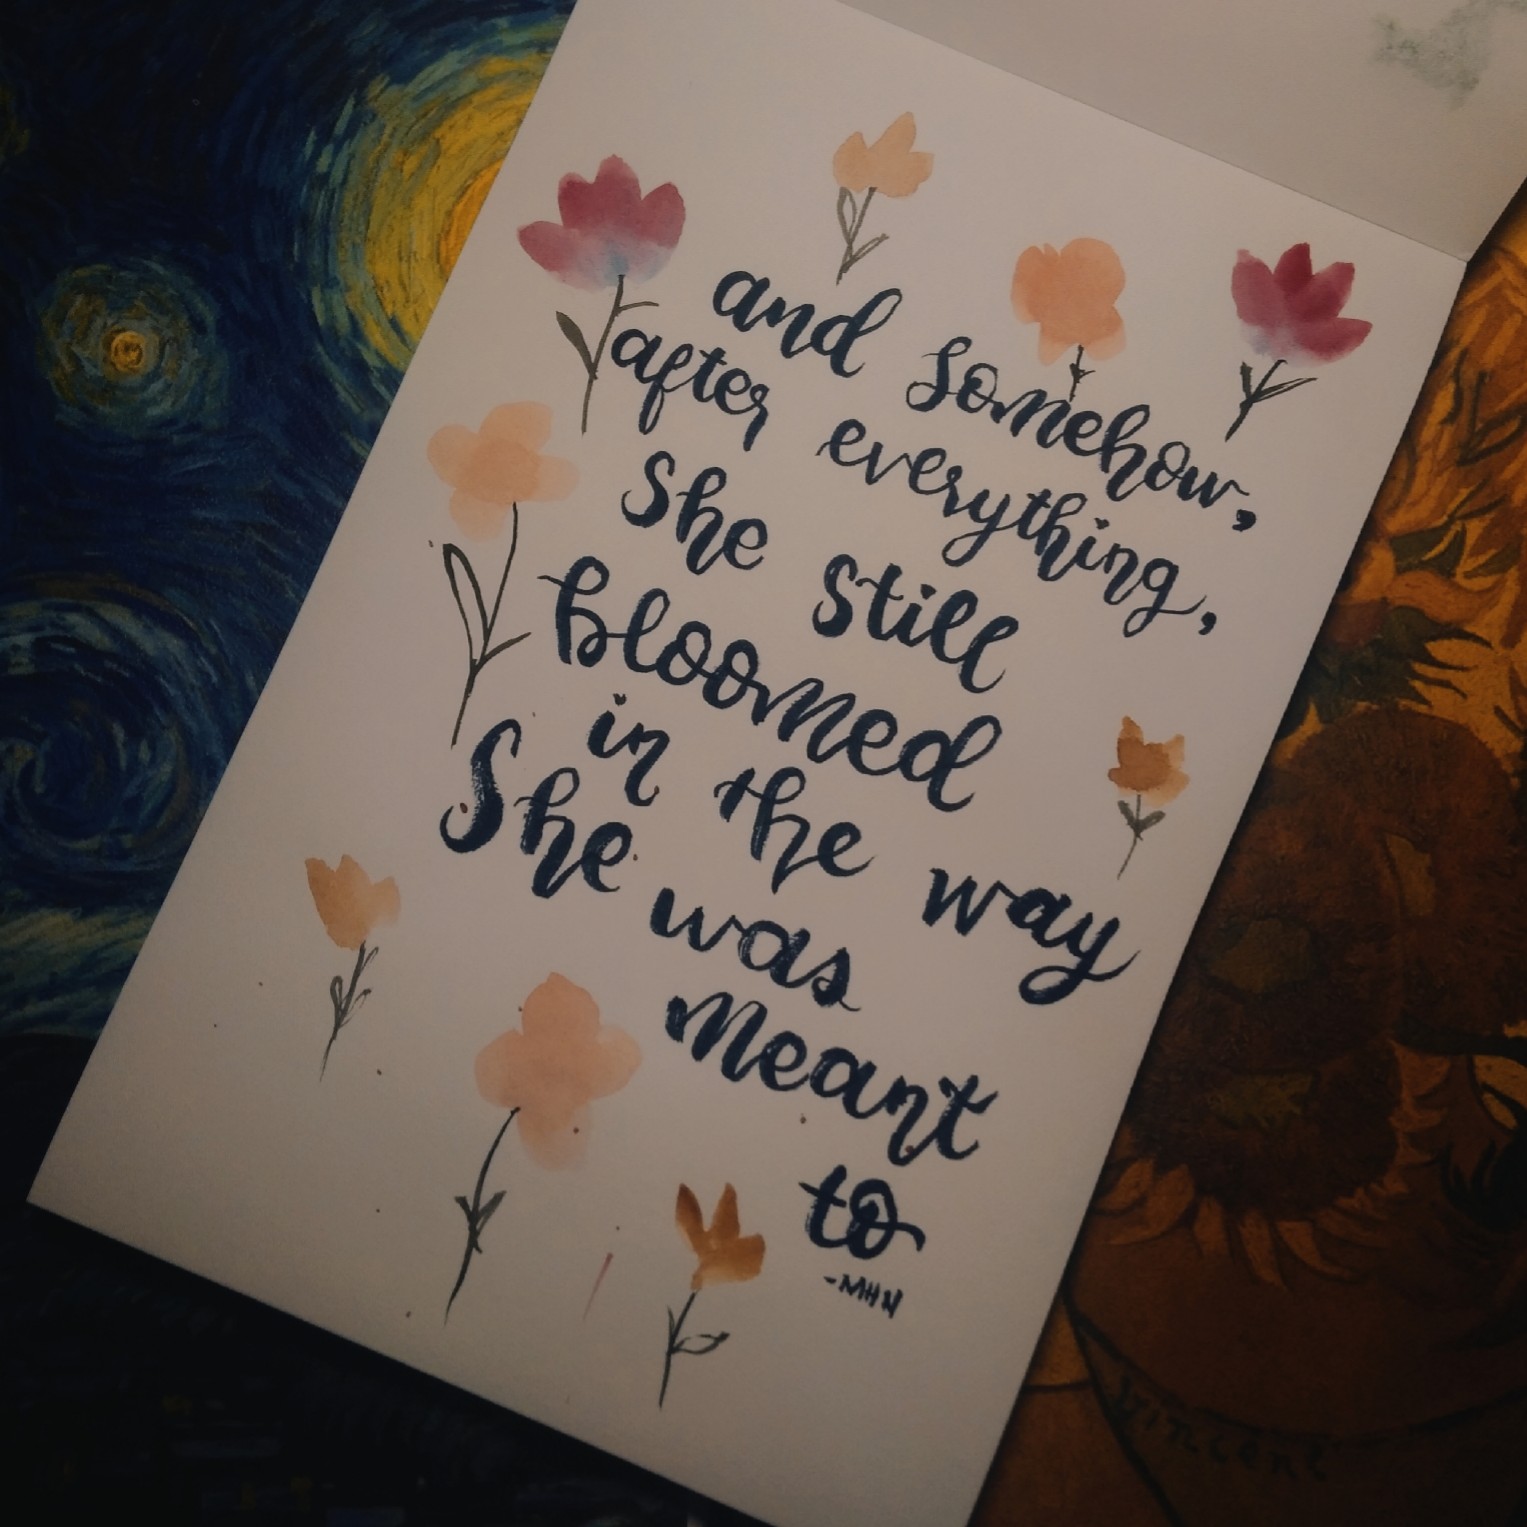 and somehow,
after everything,
She still
bloomed
in the way
She was
meant
to
-MHN
Vincent